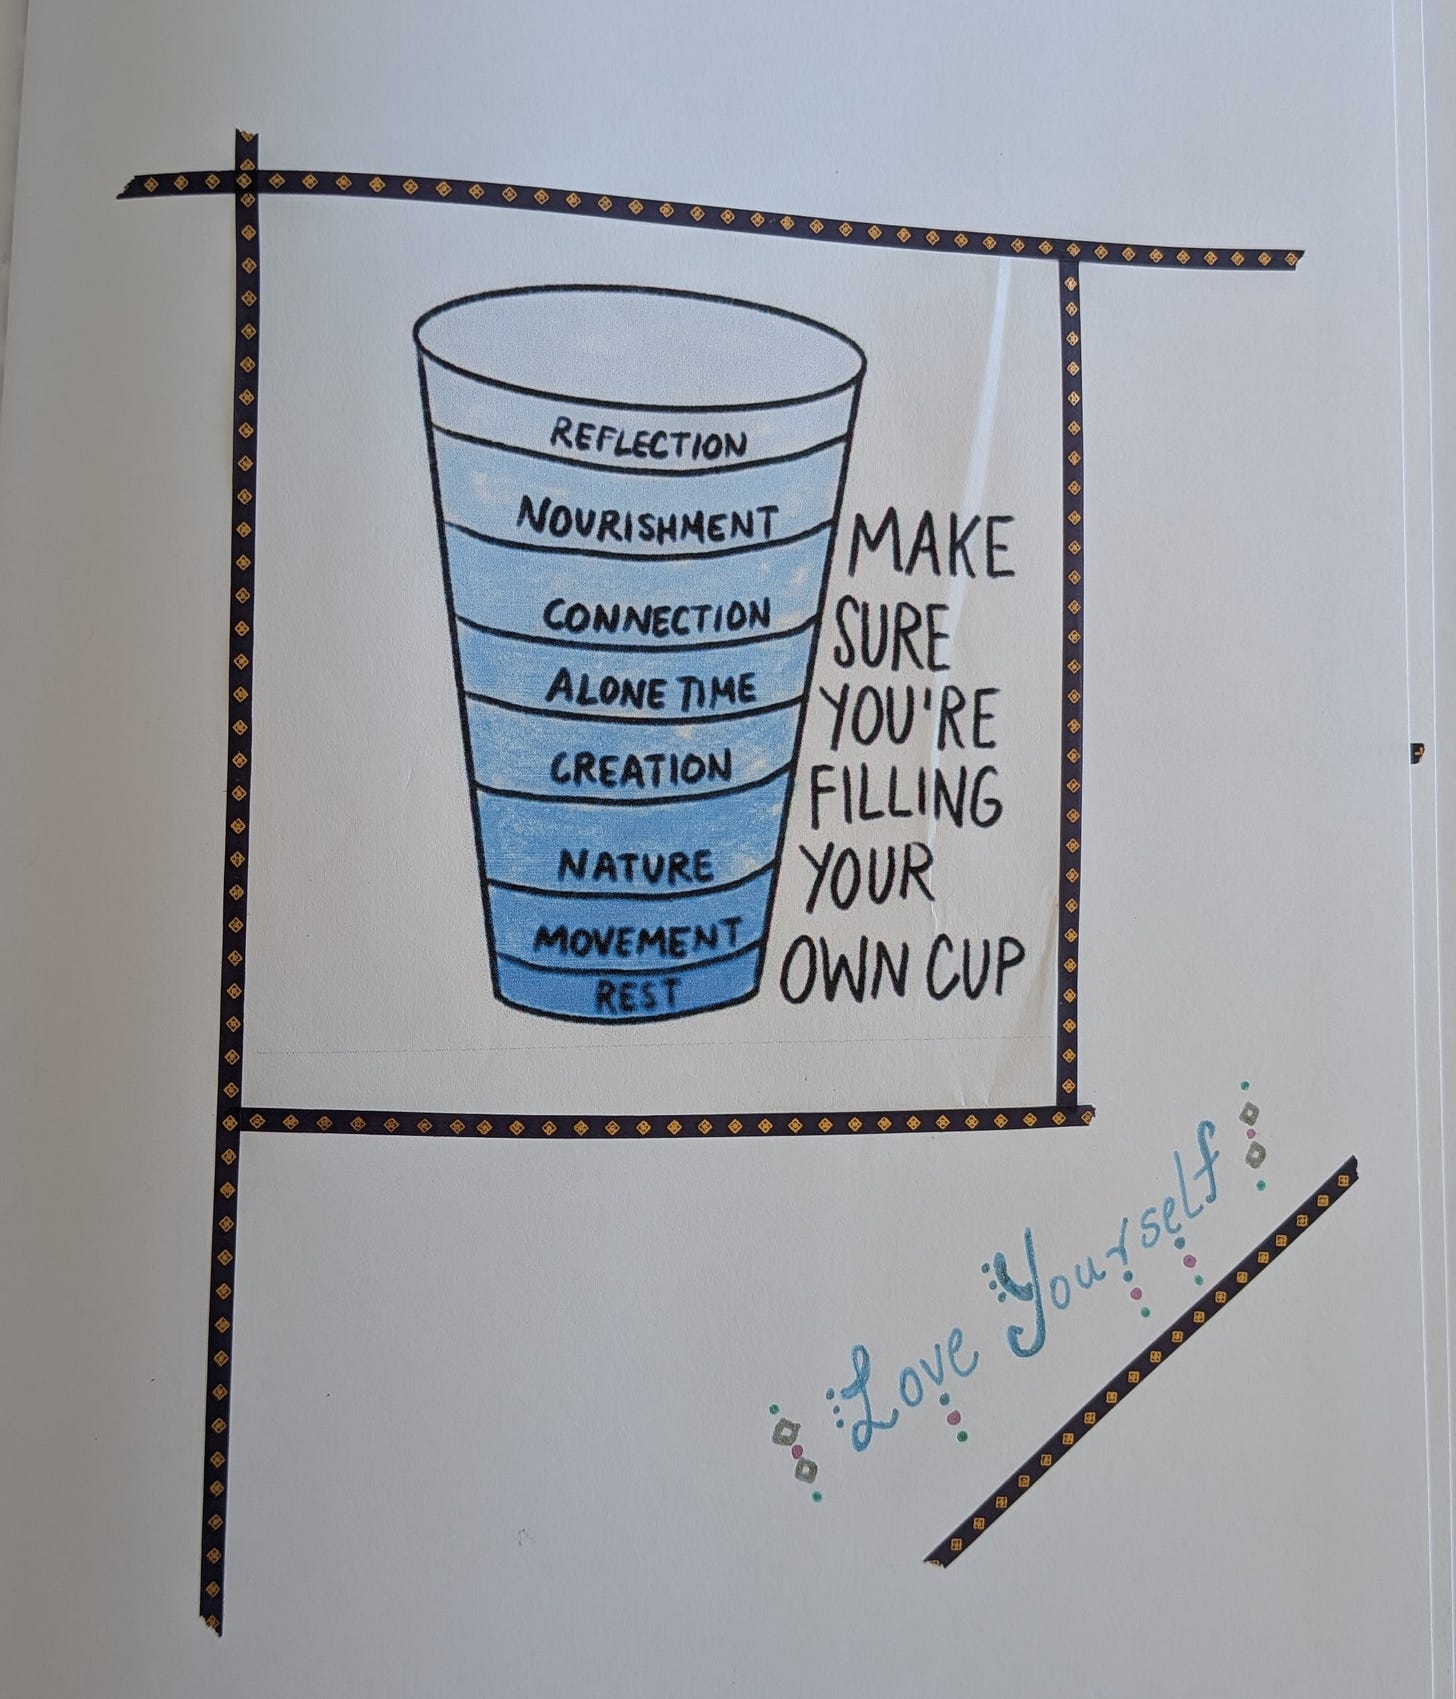 REFLECTION
NOURISHMENT
CONNECTION
ALONE TIME
CREATION
NATURE
MOVEMENT
REST
MAKE
SURE
YOU'RE
FILLING
YOUR
OWN CUP
Love Yourself